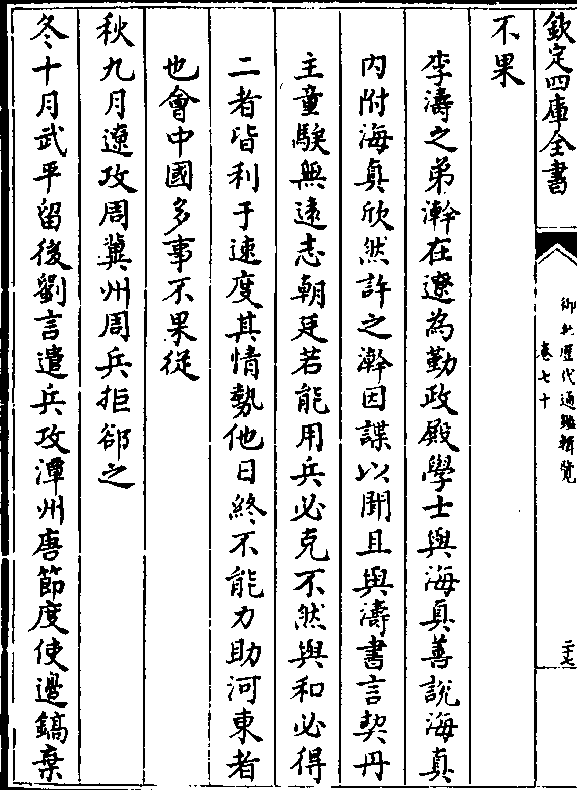 欽定四庫全書
御批歷代通鑑輯覽
卷七十
二十七
不果
李濤之弟澣在遼為勤政殿學士與海真善說海真
内附海真欣然許之澣因諜以聞且與濤書言契丹
主童騃無遠志朝廷若能用兵必克不然與和必得
二者皆利于速度其情勢他日終不能力助河東者
也會中國多事不果從
秋九月遼攻周冀州周兵拒郤之
冬十月武平留後劉言遣兵攻潭州唐節度使邊鎬棄